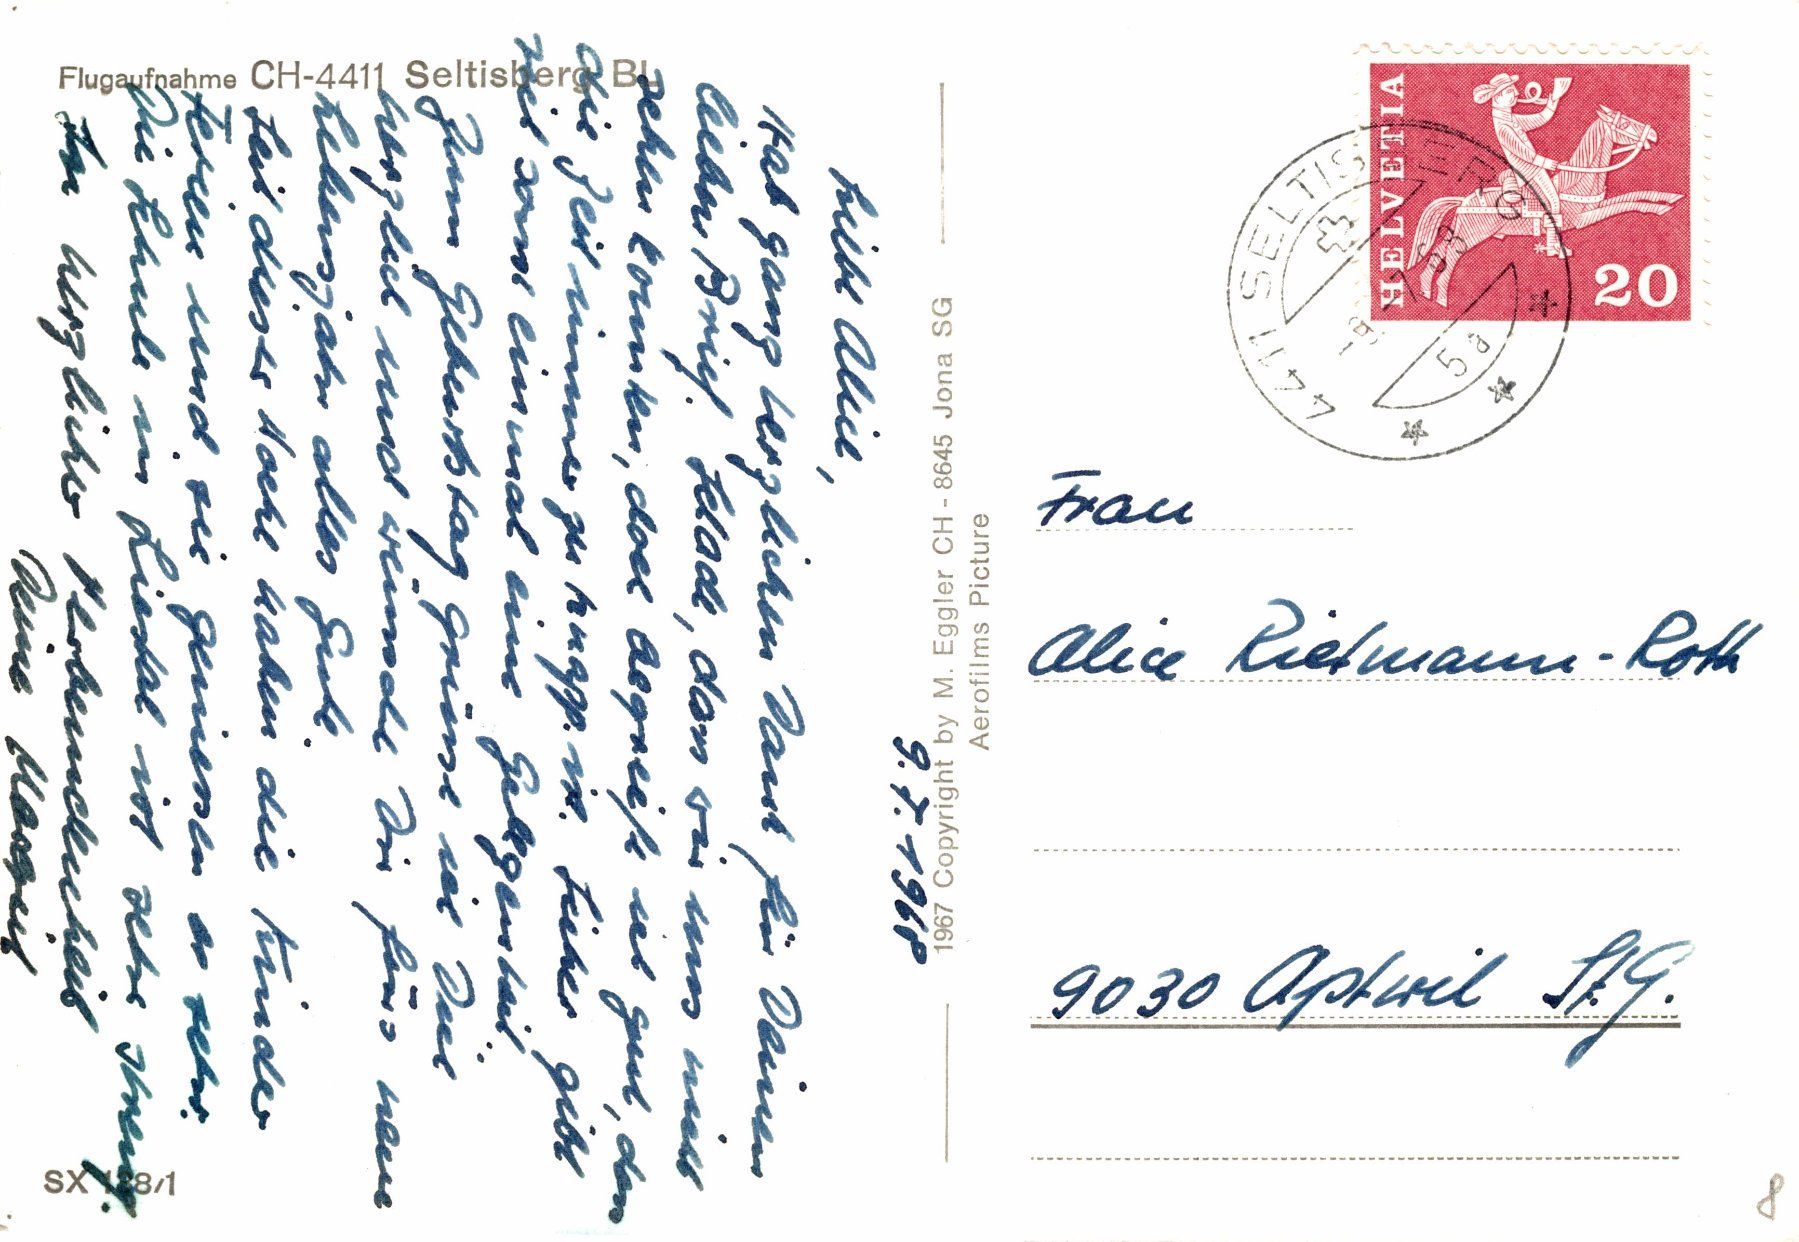 Flugaufnahme CH-4411 Seltisberg BL
9.7.1968
Liebe Alice,
Hab ganz herzlichen Dank für Deinen
lieben Brief. Schade, dass wir uns nicht
sehen konnten, doch begreife ich gut, dass
die Zeit immer zu knapp ist. Sicher gibt
es sonst einmal eine Gelegenheit.
Zum Geburtstag grüsse ich Dich
herzlich und wünsche Dir fürs neue
Lebensjahr alles Gute.
Seit dieser Woche haben die Kinder
Ferien und sie geniessen es sehr.
Die Schule in Liestal ist sehr streng.
In herzlicher Verbundenheit
Deine
SX 128/1
1967 Copyright by M. Eggler CH - 8645 Jona SG
Aerofilms Picture
HELVETIA
20
4411 SELTISBERG
Frau
Alice Rietmann-Roth
9030 Abtwil St.G.
8